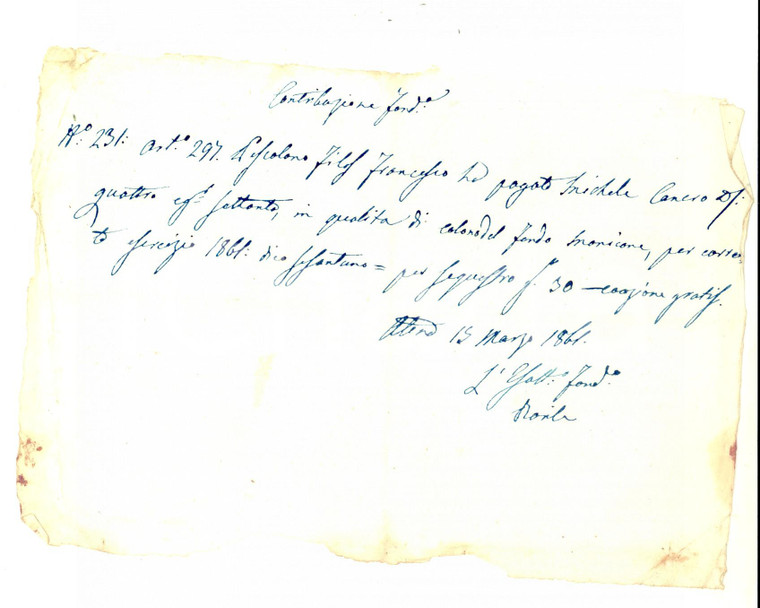 Contribuzione fond.a
N.o 231: art.o 297. Francesco ha pagato Michele Canero D.i:
quattro e g.i settanta, in qualità di colono del fondo Monicone, per corren=
te esercizio 1861: dico sessantuno = per sequestro g. 30 — coazione gratis.
15 Marzo 1861.
L'Esatt.e fond.o